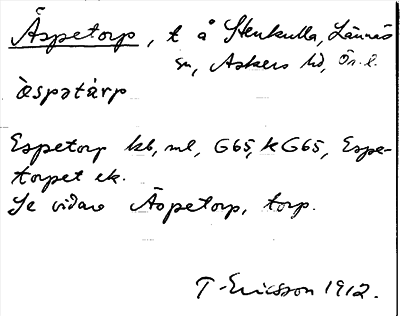 Äspetorp, t å Stenkulla, Lännäs
sn, Askers hd, Ör. l.
ä̀spətårp
Espetorp kb, ml, G65, KG65, Espe-
torpet ek.
Se vidare Äspetorp, torp.
T. Ericsson 1912.